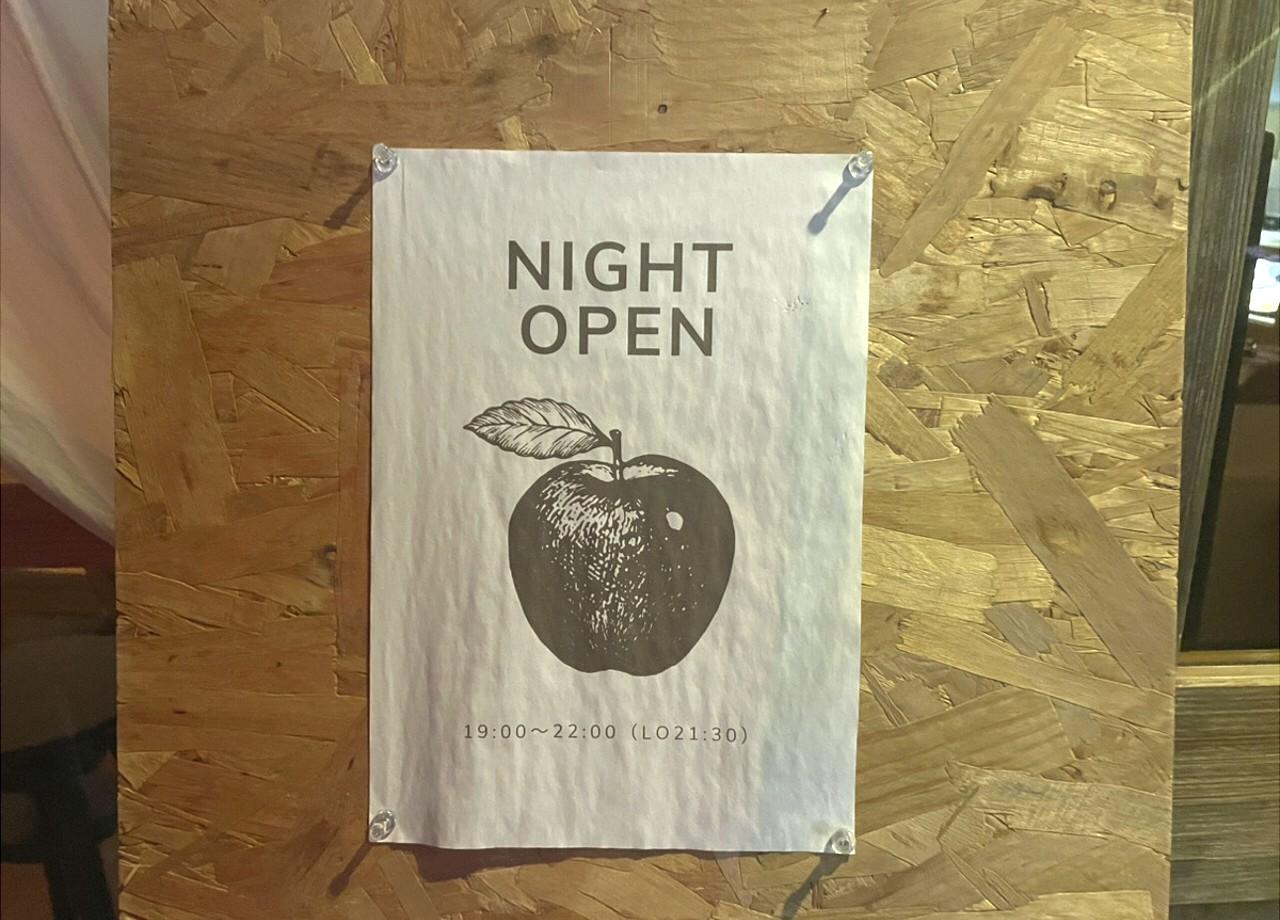 NIGHT
OPEN
19:00～22:00（LO21:30）